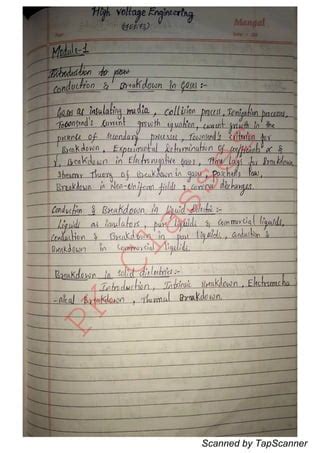 High Voltage Engineering
Mangal
Module-1
Introduction to
conduction & Breakdown in Gases :-
Gases as insulating media, Collision process, Ionization processes,
Townsend's current growth equation, current growth in the
presence of secondary processes, Townsend's criterion for
Breakdown, Experimental determination of coefficients α &
γ, Breakdown in Electronegative Gases, Time lags for Breakdown,
Streamer Theory of Breakdown in gases, Paschen's law,
Breakdown in Non-Uniform fields & corona discharges.
Conduction & Breakdown in Liquid dielectric:-
Liquids as insulators, pure liquids & commercial liquids,
Conduction & Breakdown in pure liquids, conduction &
Breakdown in commercial liquids
Breakdown in solid dielectrics:-
Introduction, Intrinsic Breakdown, Electromecha
-nical Breakdown, Thermal Breakdown.
PK Classes
Scanned by TapScanner